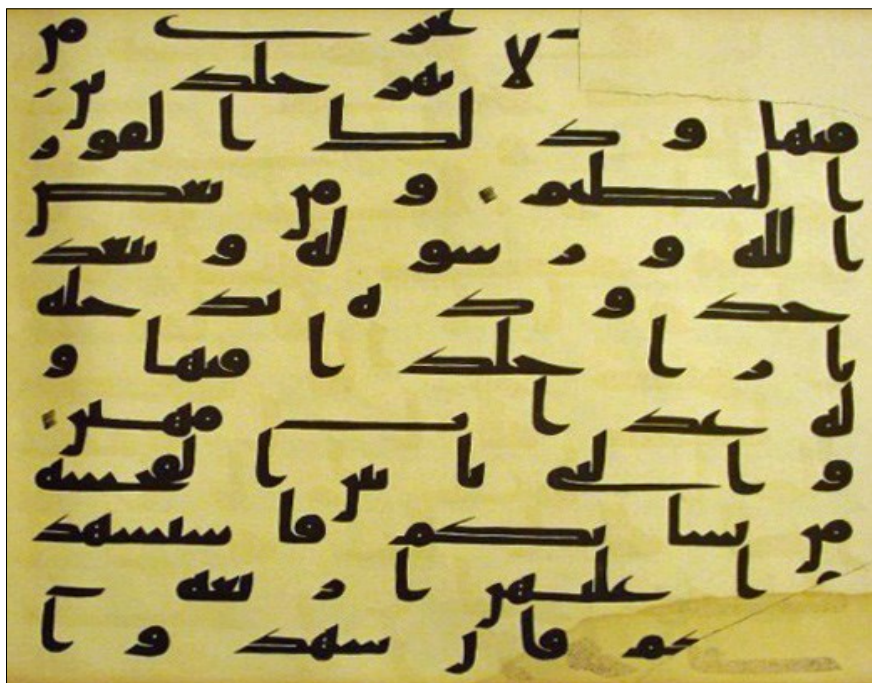 تجرى من
لا نهر خلدين
فيها و ذلك ا لفوز
ا لعظيم و من يعص
ا لله و ر سو له و يتعد
حد و د ه يد خله
نا ر ا خلد ا فيها و
له عذ ا ب مهين
و ا لتى يا تين ا لفحشة
من نسا ئكم فا ستشهد
ا عليهن ا ر بعة
كم فا ن شهد و ا